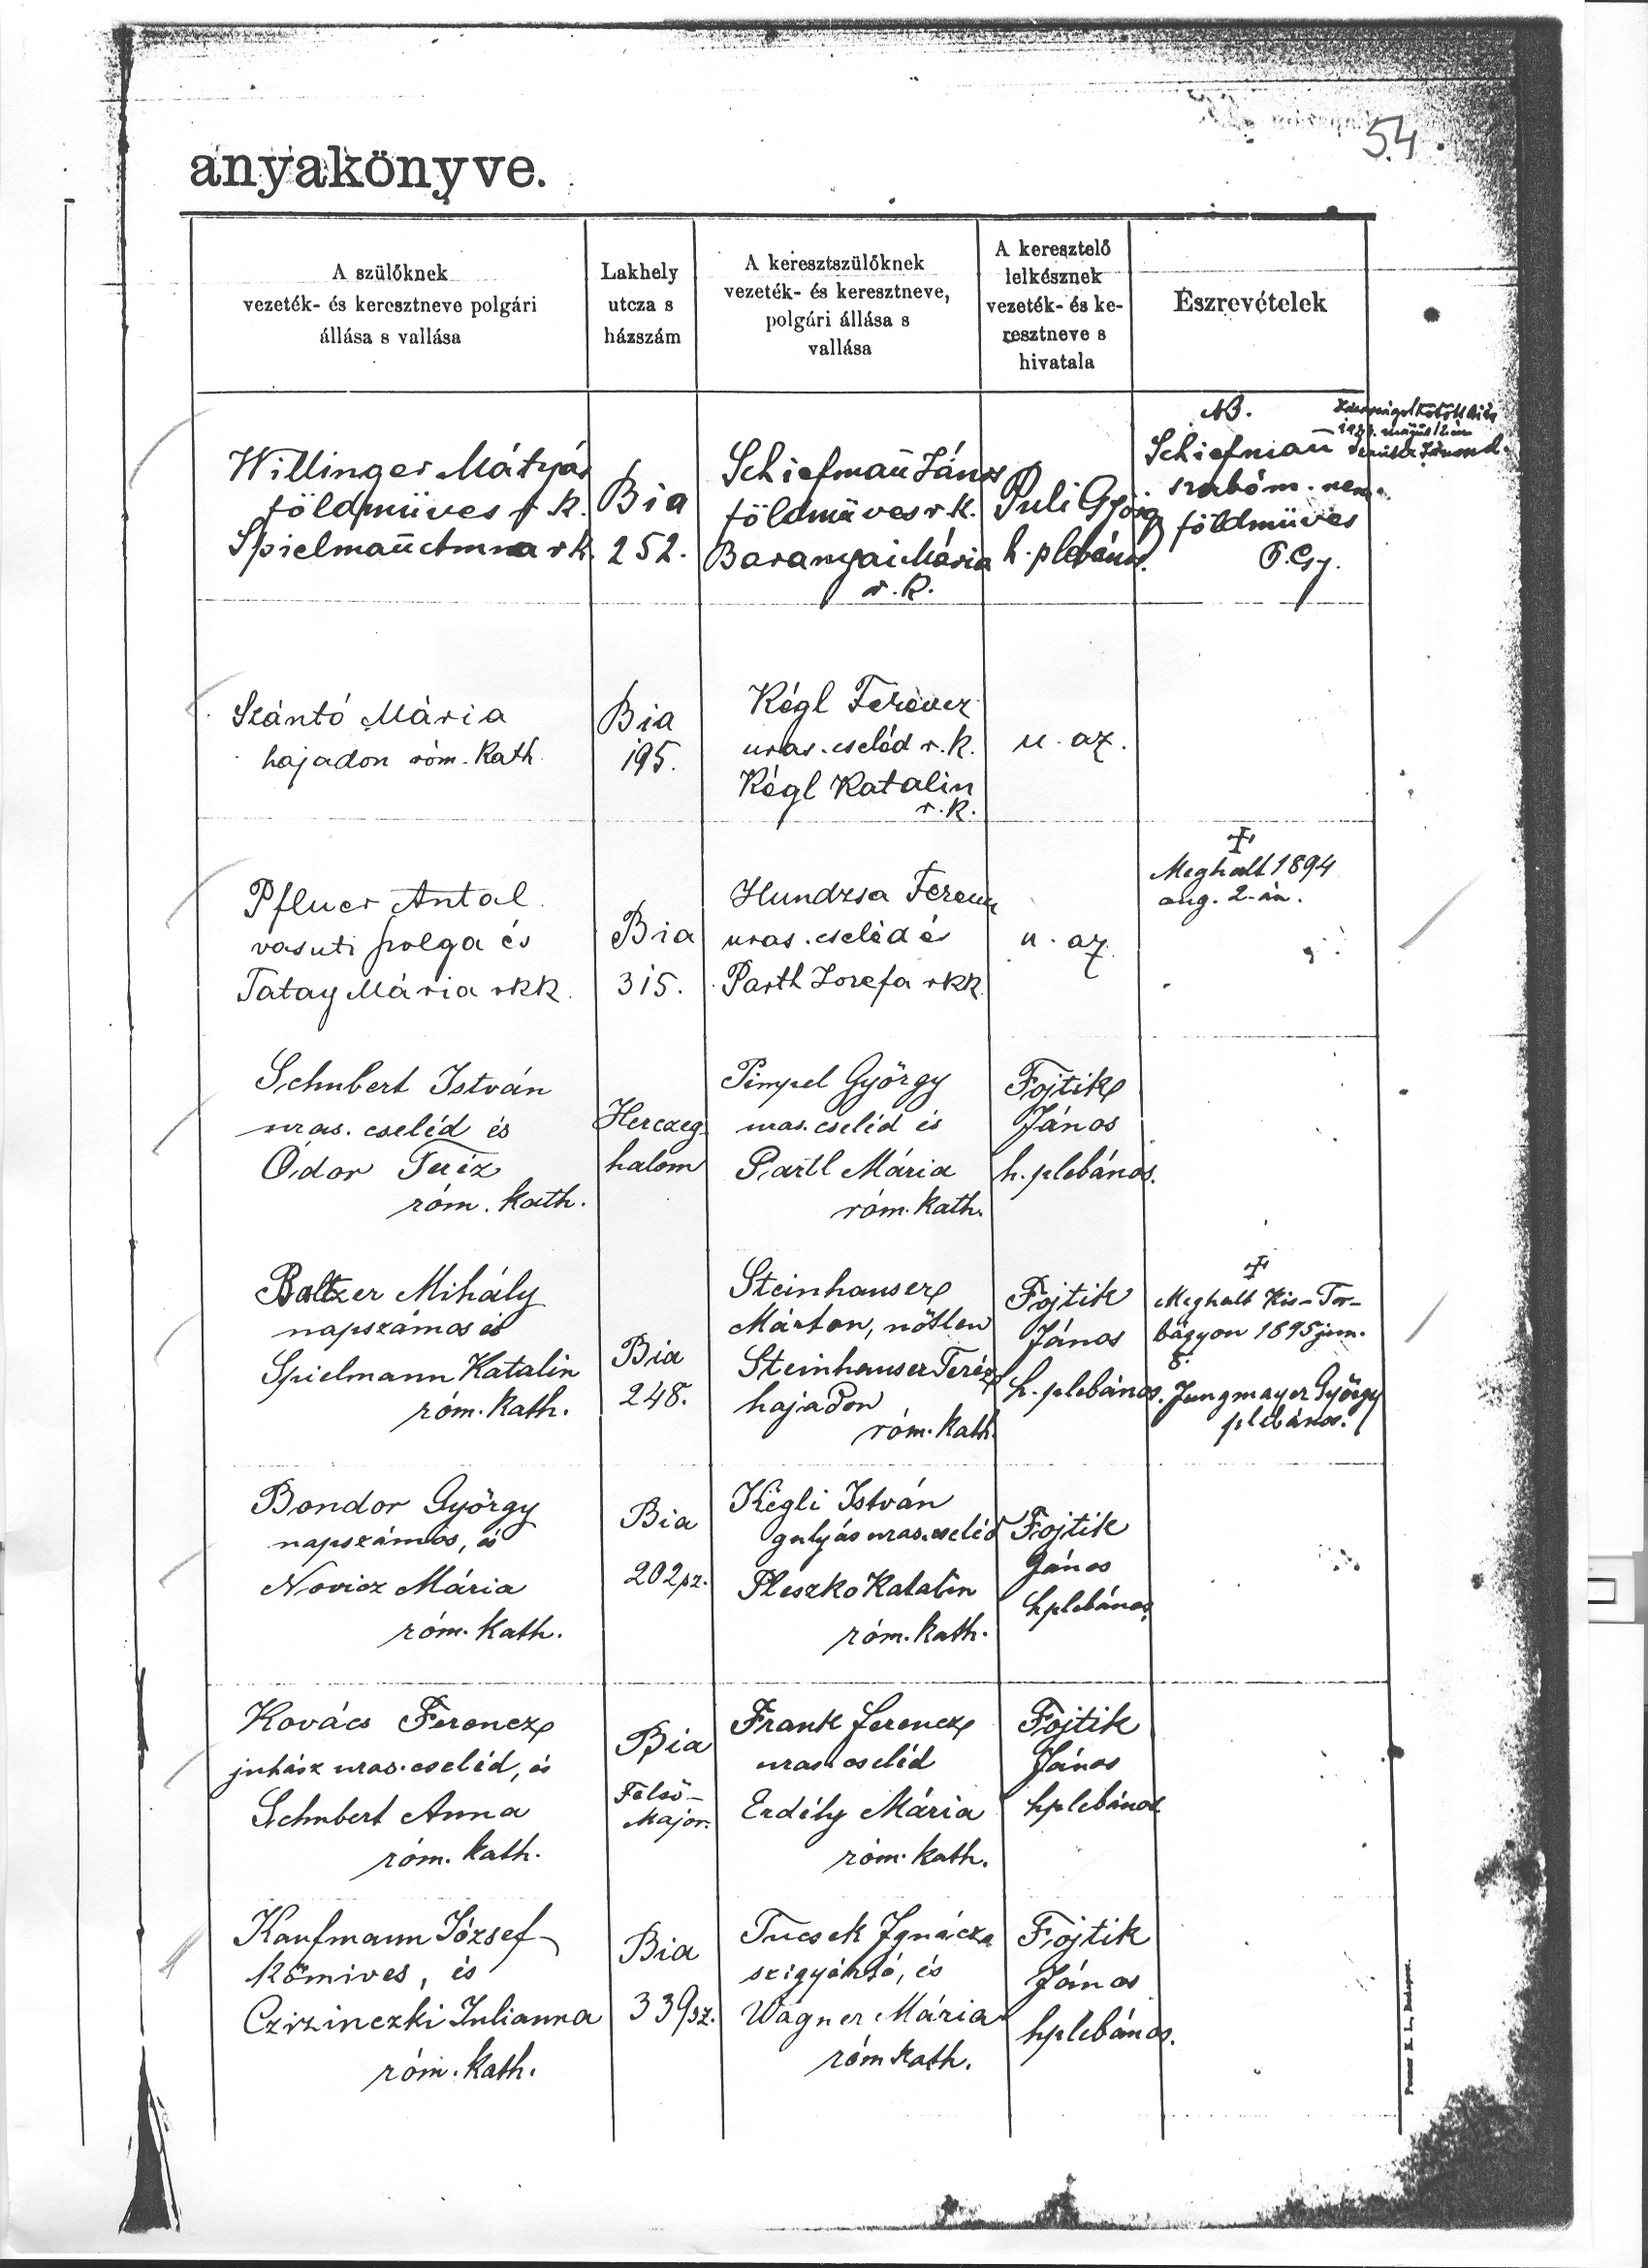 54.
anyakönyve.
A szülőknek
vezeték- és keresztneve polgári
állása s vallása
Lakhely
utcza s
házszám
A keresztszülőknek
vezeték- és keresztneve,
polgári állása s
vallása
A keresztelő
lelkésznek
vezeték- és ke-
resztneve s
hivatala
Észrevételek
Willinger Mátyás
földmüves r. k.
Spielmañ Anna r k.
Bia
252.
Schiefmañ János
földmüves r. k.
Baranyai Mária
r. k.
Puli György
h. plebános.
NB.
Schiefmañ
szabóm. nem
földmüves
P. Gy.
Szántó Mária
hajadon róm. Kath.
Bia
195.
Kégl Ferencz
uras. cseléd r. k.
Kégl Katalin
r. k.
u. az.
Pfluer Antal
vasuti szolga és
Tatay Mária rkk.
Bia
315.
Hundzsa Ferencz
uras. cseléd és
Parth Jozefa rkk.
u. az.
Meghalt 1894
aug. 2-án.
Schubert István
uras. cseléd és
Ódor Teréz
róm. kath.
Herczeg
halom
Pimpel György
uras. cseléd és
Partl Mária
róm. kath.
Fojtik
János
h. plebános.
Baltzer Mihály
napszámos és
Spielmann Katalin
róm. kath.
Bia
248.
Steinhauser
Márton, nőtlen
Steinhauser Teréz
hajadon
róm. kath.
Fojtik
János
h. plebános.
Meghalt Kis-Tor-
bágyon 1895 jun.
8.
Jungmayer György
plébános.
Bondor György
napszámos, és
Novicz Mária
róm. kath.
Bia
202 sz.
Kégli István
gulyás uras. cseléd
Pleszko Katalin
róm. kath.
Fojtik
János
hplebános
Kovács Ferencz
juhász uras. cseléd, és
Schubert Anna
róm. kath.
Bia
Felső-
Major.
Frank Ferencz
uras. cseléd
Erdély Mária
róm. kath.
Fojtik
János
hplebános
Kaufmann József
kőmives, és
Czizinczki Julianna
róm. kath.
Bia
339 sz.
Tucsek Ignácz
szigyártó, és
Wagner Mária
róm kath.
Fojtik
János
hplebános.